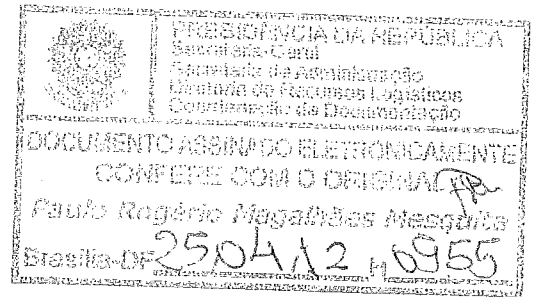 PRESIDÊNCIA DA REPÚBLICA
Secretaria-Geral
Secretaria de Administração
Diretoria de Recursos Logísticos
Coordenação de Documentação
DOCUMENTO ASSINADO ELETRONICAMENTE
CONFERE COM O ORIGINAL
Paulo Rogério Magalhães Mesquita
Brasília-DF 25/04/12 H 0955